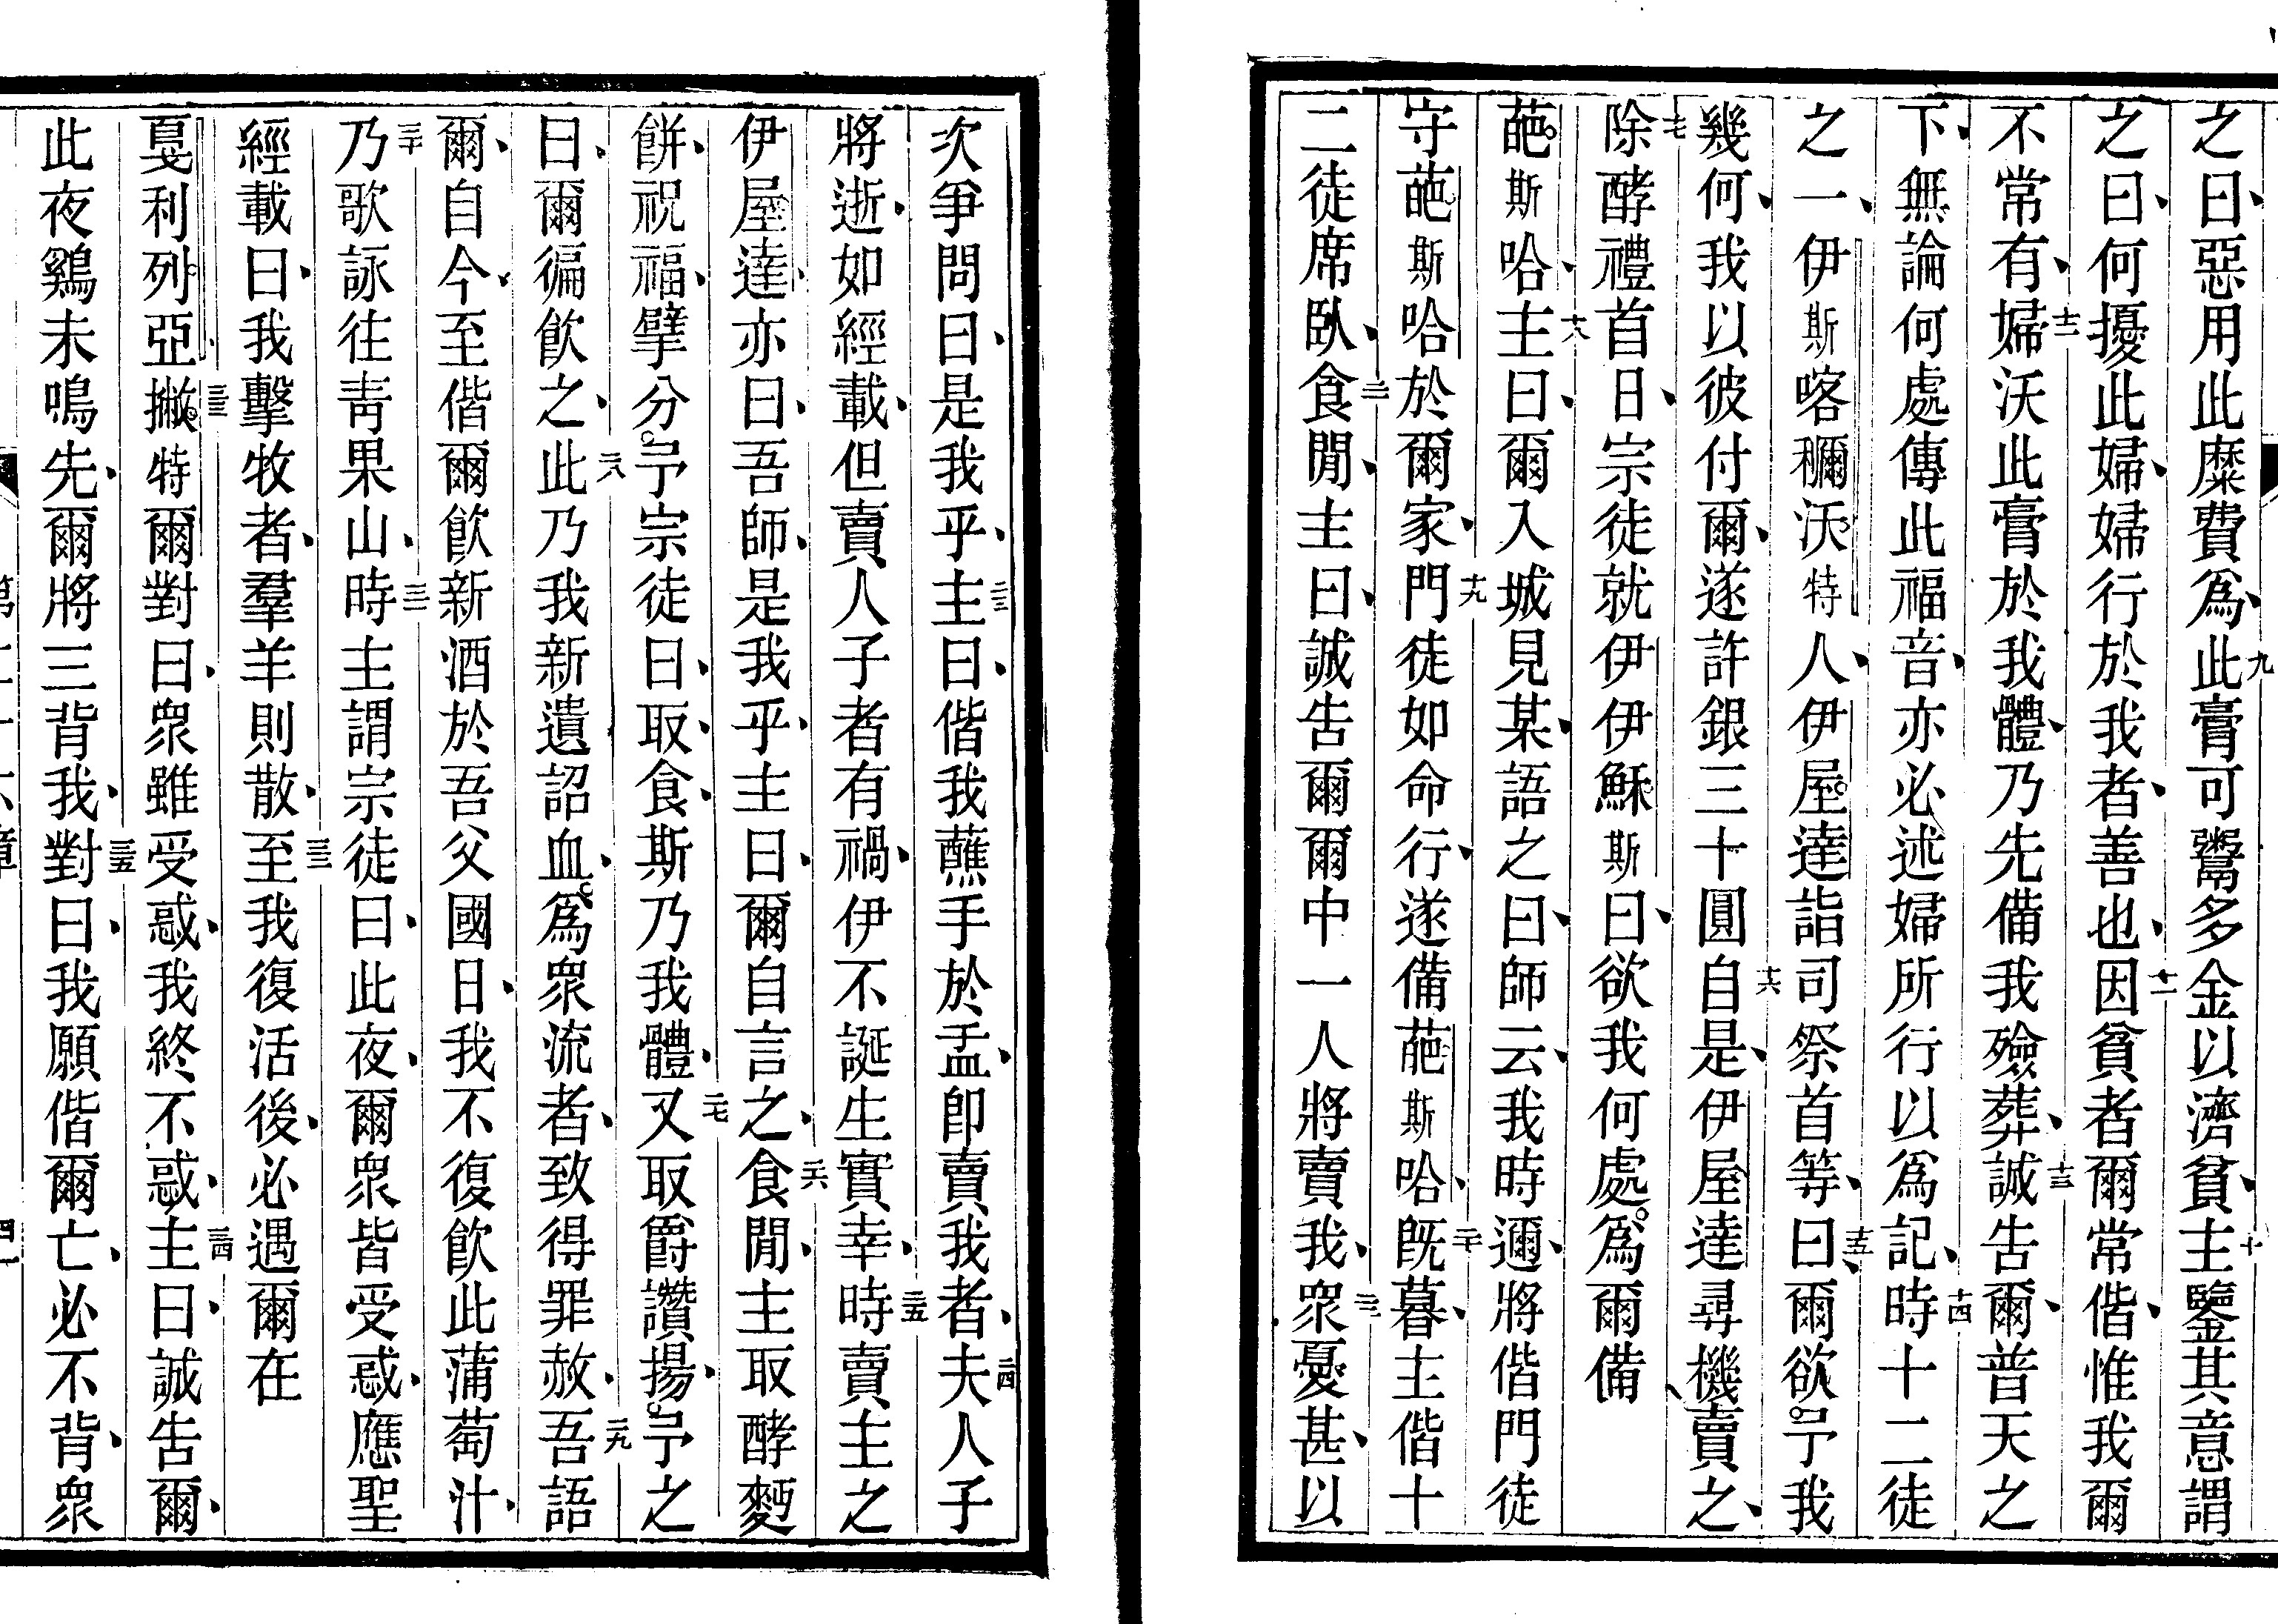 之曰、惡用此糜費爲、九此膏可鬻多金以濟貧、十主鑒其意謂
之曰、何擾此婦、婦行於我者、善也、十一因貧者爾常偕、惟我爾
不常有、十二婦沃此膏於我體、乃先備我殮葬、十三誠告爾、普天之
下、無論何處傳此福音、亦必述婦所行以爲記、十四時十二徒
之一、伊斯喀穪沃特人、伊屋達詣司祭首等、十五曰、爾欲予我
幾何、我以彼付爾、遂許銀三十圓、十六自是、伊屋達尋機賣之、
十七除酵禮首日、宗徒就伊伊穌斯曰、欲我何處爲爾備
葩斯哈、十八主曰、爾入城見某、語之曰、師云、我時邇、將偕門徒
守葩斯哈於爾家、十九門徒如命行、遂備葩斯哈、二十旣暮、主偕十
二徒席臥、二一食閒、主曰、誠告爾爾中一人將賣我、二二衆憂甚、以
次爭問曰、是我乎、二三主曰、偕我蘸手於盂、卽賣我者、二四夫人子
將逝、如經載、但賣人子者有禍、伊不誕生實幸、二五時賣主之
伊屋達亦曰、吾師、是我乎、主曰、爾自言之、二六食閒、主取酵麪
餅、祝福、擘分予宗徒曰、取食、斯乃我體、二七又取爵讚揚、予之
曰、爾徧飮之、二八此乃我新遺詔血、爲衆流者、致得罪赦、二九吾語
爾、自今、至偕爾飮新酒於吾父國日、我不復飮此蒲萄汁、
三十乃歌詠往靑果山、三一時主謂宗徒曰、此夜、爾衆皆受惑、應聖
經載曰、我擊牧者、羣羊則散、三二至我復活後、必遇爾在
戛利列亞、三三撇特爾對曰、衆雖受惑、我終不惑、三四主曰、誠告爾、
此夜鷄未鳴先、爾將三背我、三五對曰、我願偕爾亡、必不背、衆